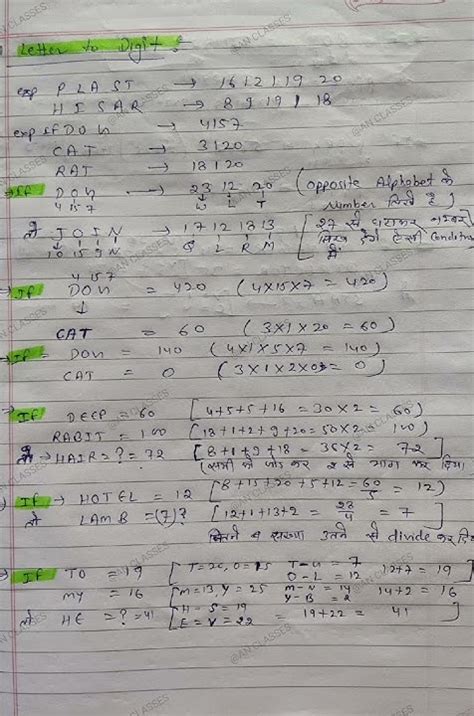 Letter to Digit :
exp PLAST → 16 12 1 19 20
HISAR → 8 9 19 1 18
exp If DON → 4157
CAT → 3120
RAT → 18120
⇒ If DON → 23 12 20 (opposite Alphabet के
4 15 7 W L T Number लिखे है)
तो JOIN → 17 12 18 13 [27 से घटाकर
10 15 9 N Q L R M
4 15 7
→ If DON = 420 (4×15×7 = 420)
↓
CAT = 60 (3×1×20 = 60)
⇒ If DON = 140 (4×1×5×7 = 140)
CAT = 0 (3×1×2×0 = 0)
⇒ If DEEP = 60 [4+5+5+16 = 30×2 = 60)
RABIT = 100 (18+1+2+9+20=50×2= 100)
HAIR = ? = 72 [8+1+9+18 = 36×2 = 72]
कर 2 से भाग कर दिया
⇒ If → HOTEL = 12 [8+15+20+5+12=60/5 = 12)
तो LAMB = (7)? [12+1+13+2 = 28/4 = 7]
संख्या उतने से divide कर
⇒ If TO = 19 [T=20, O=15 T-G = 7 12+7 = 19]
O-L = 12
MY = 16 [M=13, Y=25 M-N = 14 14+2 = 16
Y-B = 2
तो HE = ? = 41 [H-S = 19
E=V=22 = 19+22 = 41]
@AN CLASSES